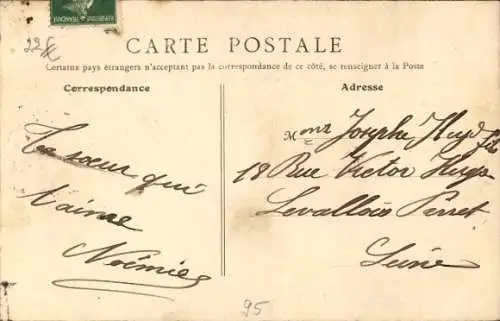 22
CARTE POSTALE
Certains pays étrangers n'acceptant pas la correspondance de ce côté, se renseigner à la Poste
Correspondance
Adresse
Ta sœur qui
t'aime
Noémie
Joseph
18 Rue Victor Hugo
Levallois Perret
Seine
95